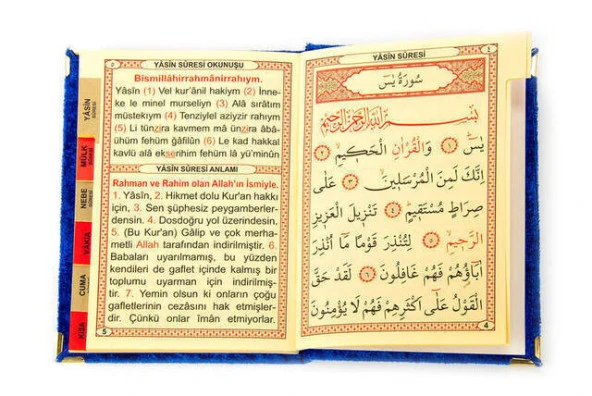 YÂSÎN SÛRESİ OKUNUŞU
Bismillâhirrahmânirrahıym.
Yâsîn (1) Vel kur'ânil hakiym (2) İnne-
ke le minel murseliyn (3) Alâ sırâtım
müstekiym (4) Tenziylel aziyzir rahıym
(5) Li tünzira kavmem mâ ünzira âbâ-
ühüm fehüm ğâfilûn (6) Le kad hakkal
kavlü alâ ekserihim fehüm lâ yü'minûn
YÂSÎN SÛRESİ ANLAMI
Rahman ve Rahim olan Allah'ın İsmiyle.
1. Yâsîn, 2. Hikmet dolu Kur'an hakkı
için, 3. Sen şüphesiz peygamberler-
densin. 4. Dosdoğru yol üzerindesin.
5. (Bu Kur'an) Gâlip ve çok merha-
metli Allah tarafından indirilmiştir. 6.
Babaları uyarılmamış, bu yüzden
kendileri de gaflet içinde kalmış bir
toplumu uyarman için indirilmiş-
tir. 7. Yemin olsun ki onların çoğu
gafletlerinin cezasını hak etmişler-
dir. Çünkü onlar îmân etmiyorlar.
5
YÂSÎN
SÛRESİ
MÜLK
SÛRESİ
NEBE
SÛRESİ
VÂKIA
CUMA
KISA
YÂSÎN SÛRESİ
٤
سُورَةُ يٰسٓ
بِسْمِ اللّٰهِ الرَّحْمٰنِ الرَّحِيمِ
يٰسٓ ﴿١﴾ وَالْقُرْاٰنِ الْحَكِيمِ ﴿٢﴾
اِنَّكَ لَمِنَ الْمُرْسَلِينَ ﴿٣﴾ عَلٰى
صِرَاطٍ مُسْتَقِيمٍ ﴿٤﴾ تَنْزِيلَ الْعَزِيزِ
الرَّحِيمِ ﴿٥﴾ لِتُنْذِرَ قَوْمًا مَٓا اُنْذِرَ
اٰبَٓاؤُهُمْ فَهُمْ غَافِلُونَ ﴿٦﴾ لَقَدْ حَقَّ
الْقَوْلُ عَلٰٓى اَكْثَرِهِمْ فَهُمْ لَا يُؤْمِنُونَ
4